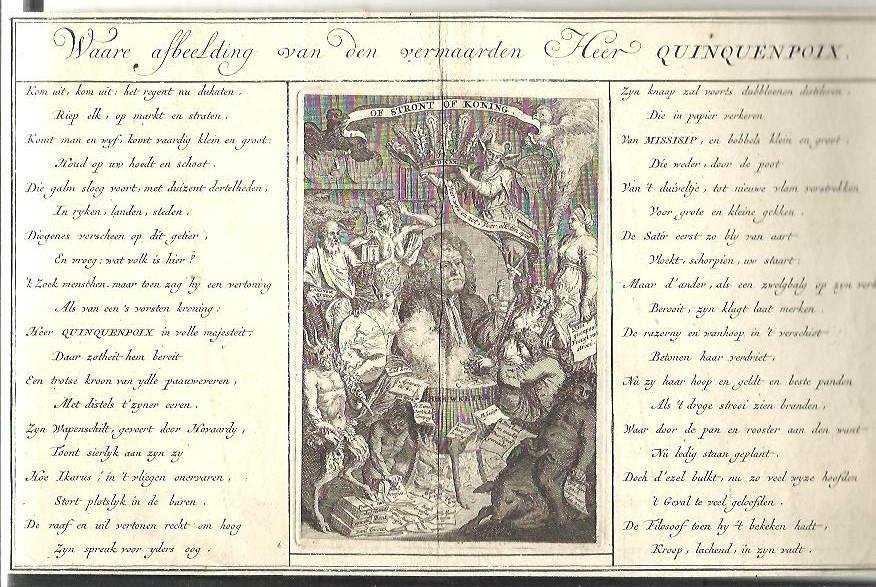 Waare afbeelding van den vermaarden Heer QUINQUENPOIX.
Kom uit, kom uit: het regent nu dukaten,
Riep elk, op markt en straten.
Komt man en wyf, komt vaardig klein en groot:
Houd op uw hoedt en schoot.
Die galm sloeg voort, met duizent dertelheden,
In ryken, landen, steden.
Diogenes verscheen op dit getier,
En vroeg: wat volk is hier?
'k Zoek menschen. maar toen zag hy een vertoning
Als van een's vorsten kroning:
Heer QUINQUENPOIX in volle majesteit;
Daar zotheit hem bereit
Een trotse kroon van ydle paauweveren,
Met distels t'zyner eeren.
Zyn Wapenschilt, gevoert door Hovaardy,
Toont sierlyk aan zyn zy
Hoe Ikarus, in 't vliegen onervaren,
Stort plotslyk in de baren.
De raaf en uil vertonen recht om hoog
Zyn spreuk voor yders oog.
OF STRONT OF KONING.
Zyn knaap zal voorts dubbloenen distileren,
Die in papier verkeren
Van MISSISIP, en bobbels klein en groot,
Die weder, door de poot
Van 't duiveltje, tot nieuwe vlam verstrekken
Voor grote en kleine gekken.
De Satir eerst zo bly van aart
Vloekt, schorpioen, uw staart:
Maar d'ander, als een zwelgbalg op zyn
Berooit, zyn klagt laat merken.
De razerny en wanhoop in 't verschiet
Betonen haar verdriet,
Nu zy haar hoop en geldt en beste panden
Als 't droge strooi zien branden,
Waar door de pan en rooster aan den want
Nu ledig staan geplant.
Doch d'ezel bulkt, nu zo veel wyze hoofden
't Geval te veel geloofden.
De Filosoof toen hy 't bekeken hadt,
Kroop, lachend, in zyn vadt.